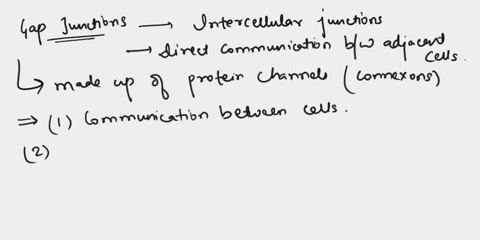 Gap Junctions → Intercellular junctions
→ direct communication b/w adjacent cells.
↳ made up of protein channels (connexons)
⇒ (1) Communication between cells.
(2)